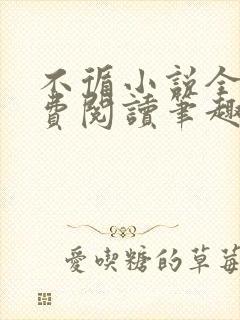 不循小说全
費閱讀筆趣
愛喫糖的草莓